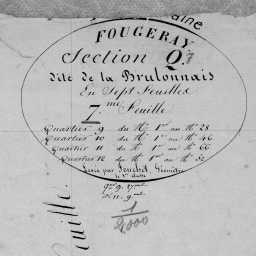 aine
FOUGERAY
Section Q3
dite de la Brulonnais
En Sept Feuilles
7.me Feuille.
Quartier 9 du No 1er au No 28
Quartier 10 du No 1er au No 46
Quartier 11 du No 1er au No 66
Quartier 12 du No 1er au No 52
Levée par Géomètre
1
2000
euille.